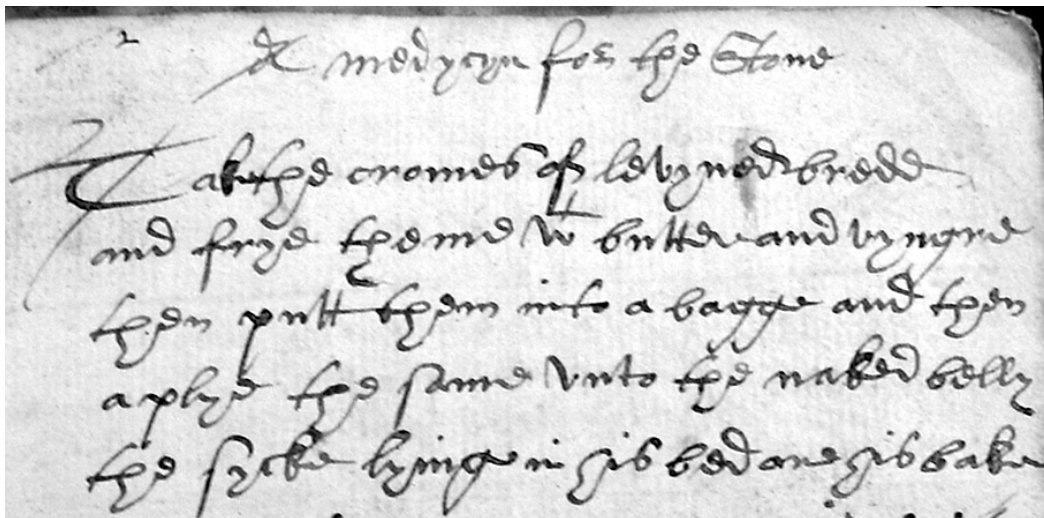 A medycyn for the Stone
Take the cromes of levyned bredde
and frye theme wt butter and vyngre
then putt them into a bagge and then
aplye the same vnto the naked belly
the sycke lyinge in his bed one his bake